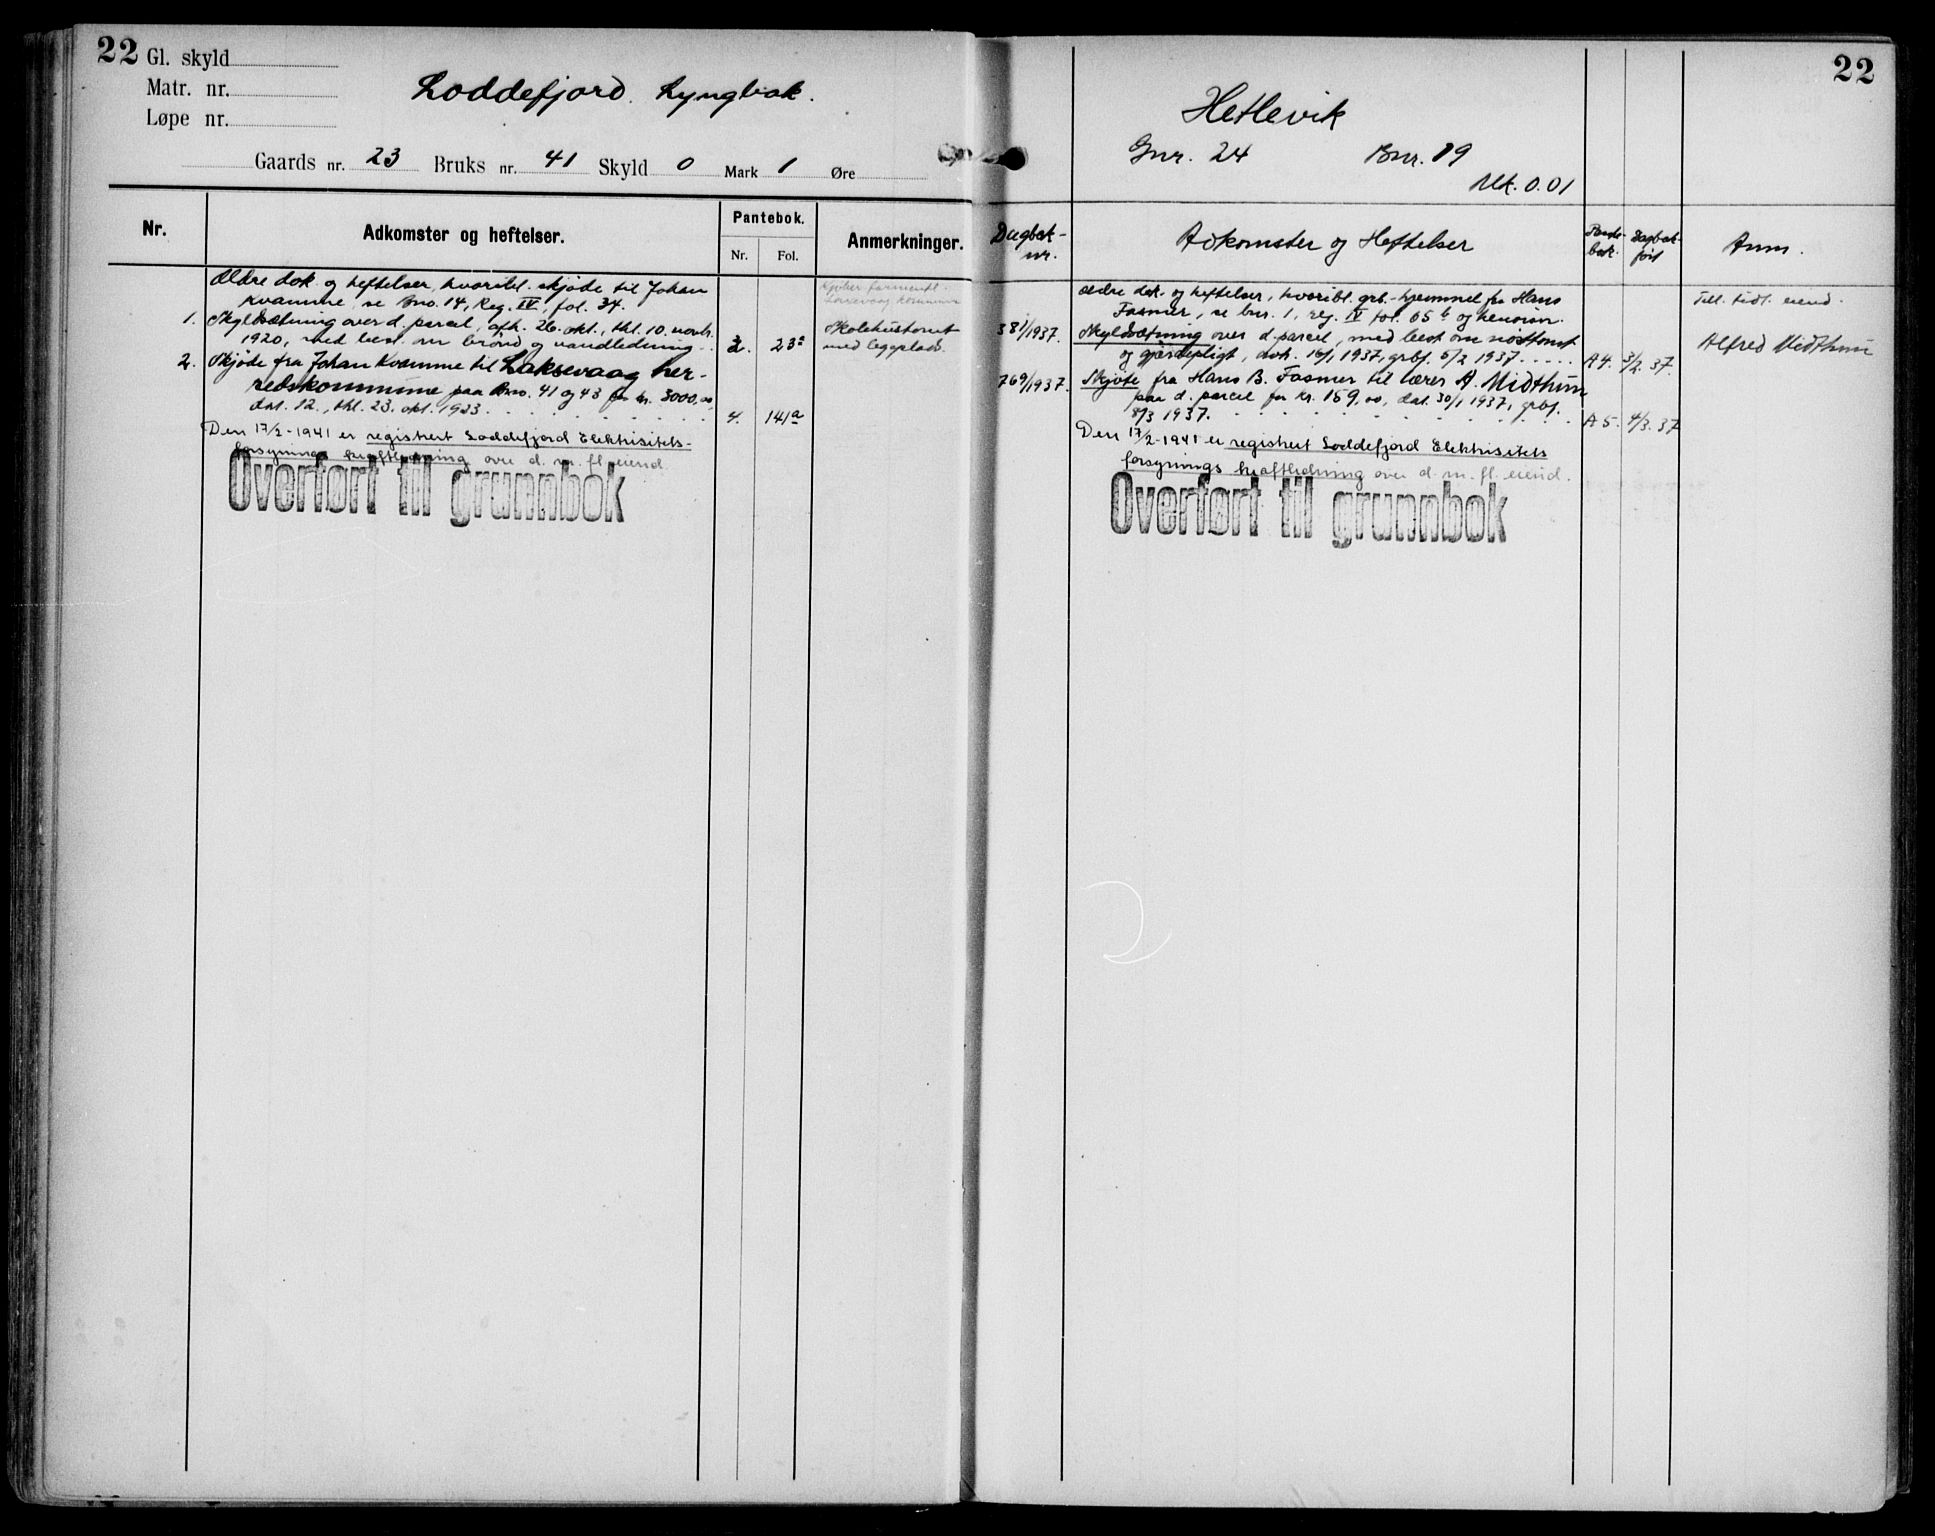 22
Gl. skyld
Matr. nr.
Løpe nr.
Loddefjord. Lyngbak.
Gaards nr. 23 Bruks nr. 41 Skyld 0 Mark 1 Øre
Nr.
Adkomster og heftelser.
Pantebok.
Nr. Fol.
Anmerkninger.
Ældre dok. og heftelser, hvoribl. skjøde til Johan
Kvamme, se Bno. 14, Reg. IV, fol. 34.
1. Skyldsætning over d. parcel, afh. 26. okt., thl. 10. novbr.
1920, med best. om brønd og vandledning 2. 23a
Skolehustomt
med legeplads.
2. Skjøde fra Johan Kvamme til Laksevaag her-
redskommune paa Bno. 41 og 43 for kr. 3000,00,
dat. 12., thl. 23. okt. 1923. 4. 141a
Den 17/2-1941 er registrert Loddefjord Elektrisitets-
forsynings kraftledning over d. m. fl. eiend.
Overført til grunnbok
22
Hetlevik
Gnr. 24 Bnr. 19
Mk. 0.01
Dagbok-
nr.
Adkomster og Heftelser
Pante-
bok.
Dagbok-
ført
Anm.
Ældre dok. og heftelser, hvoribl. grb. hjemmel fra Hans
Fasmer, se bnr. 1, reg. IV fol. 65 b og
Till. tidl. eiend.
381/1937. Skyldsætning over d. parcel, med best om nøsttomt
og gjerdepligt, avh. 16/1 1937, grbf. 5/2 1937. A 4. 3/2. 37.
Alfred Midthun
769/1937. Skjøte fra Hans B. Fasmer til lærer A. Midthun
paa d. parcel for kr. 159,00, dat. 30/1 1937, grbf.
8/3 1937. A 5. 4/3. 37
Den 17/2-1941 er registrert Loddefjord Elektrisitets
forsynings kraftledning over d. m. fl. eiend.
Overført til grunnbok